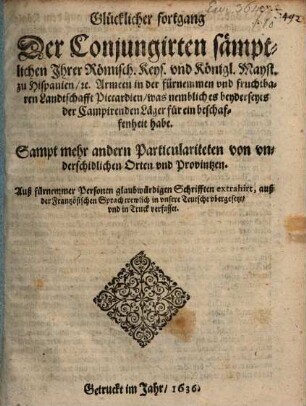 Glücklicher fortgang
Der Conjungirten sämpt-
lichen Jhrer Römisch. Keys. vnd Königl. Mayst.
zu Hispanien/ ꝛc. Armeen in der fürnemmen vnd fruchtba-
ren Landtschafft Piccardien/ was nemblich es beyderseyts
der Campirenden Läger für ein beschaf-
fenheit habe.
Sampt mehr andern Particulariteten von vn-
derschidlichen Orten vnd Provintzen.
Auß fürnemmer Personen glaubwürdigen Schrifften extrahirt, auß
der Französischen Sprach trewlich in vnsere Teutsche vbergesetzt/
vnd in Truck verfasset.
Getruckt im Jahr/ 1636.